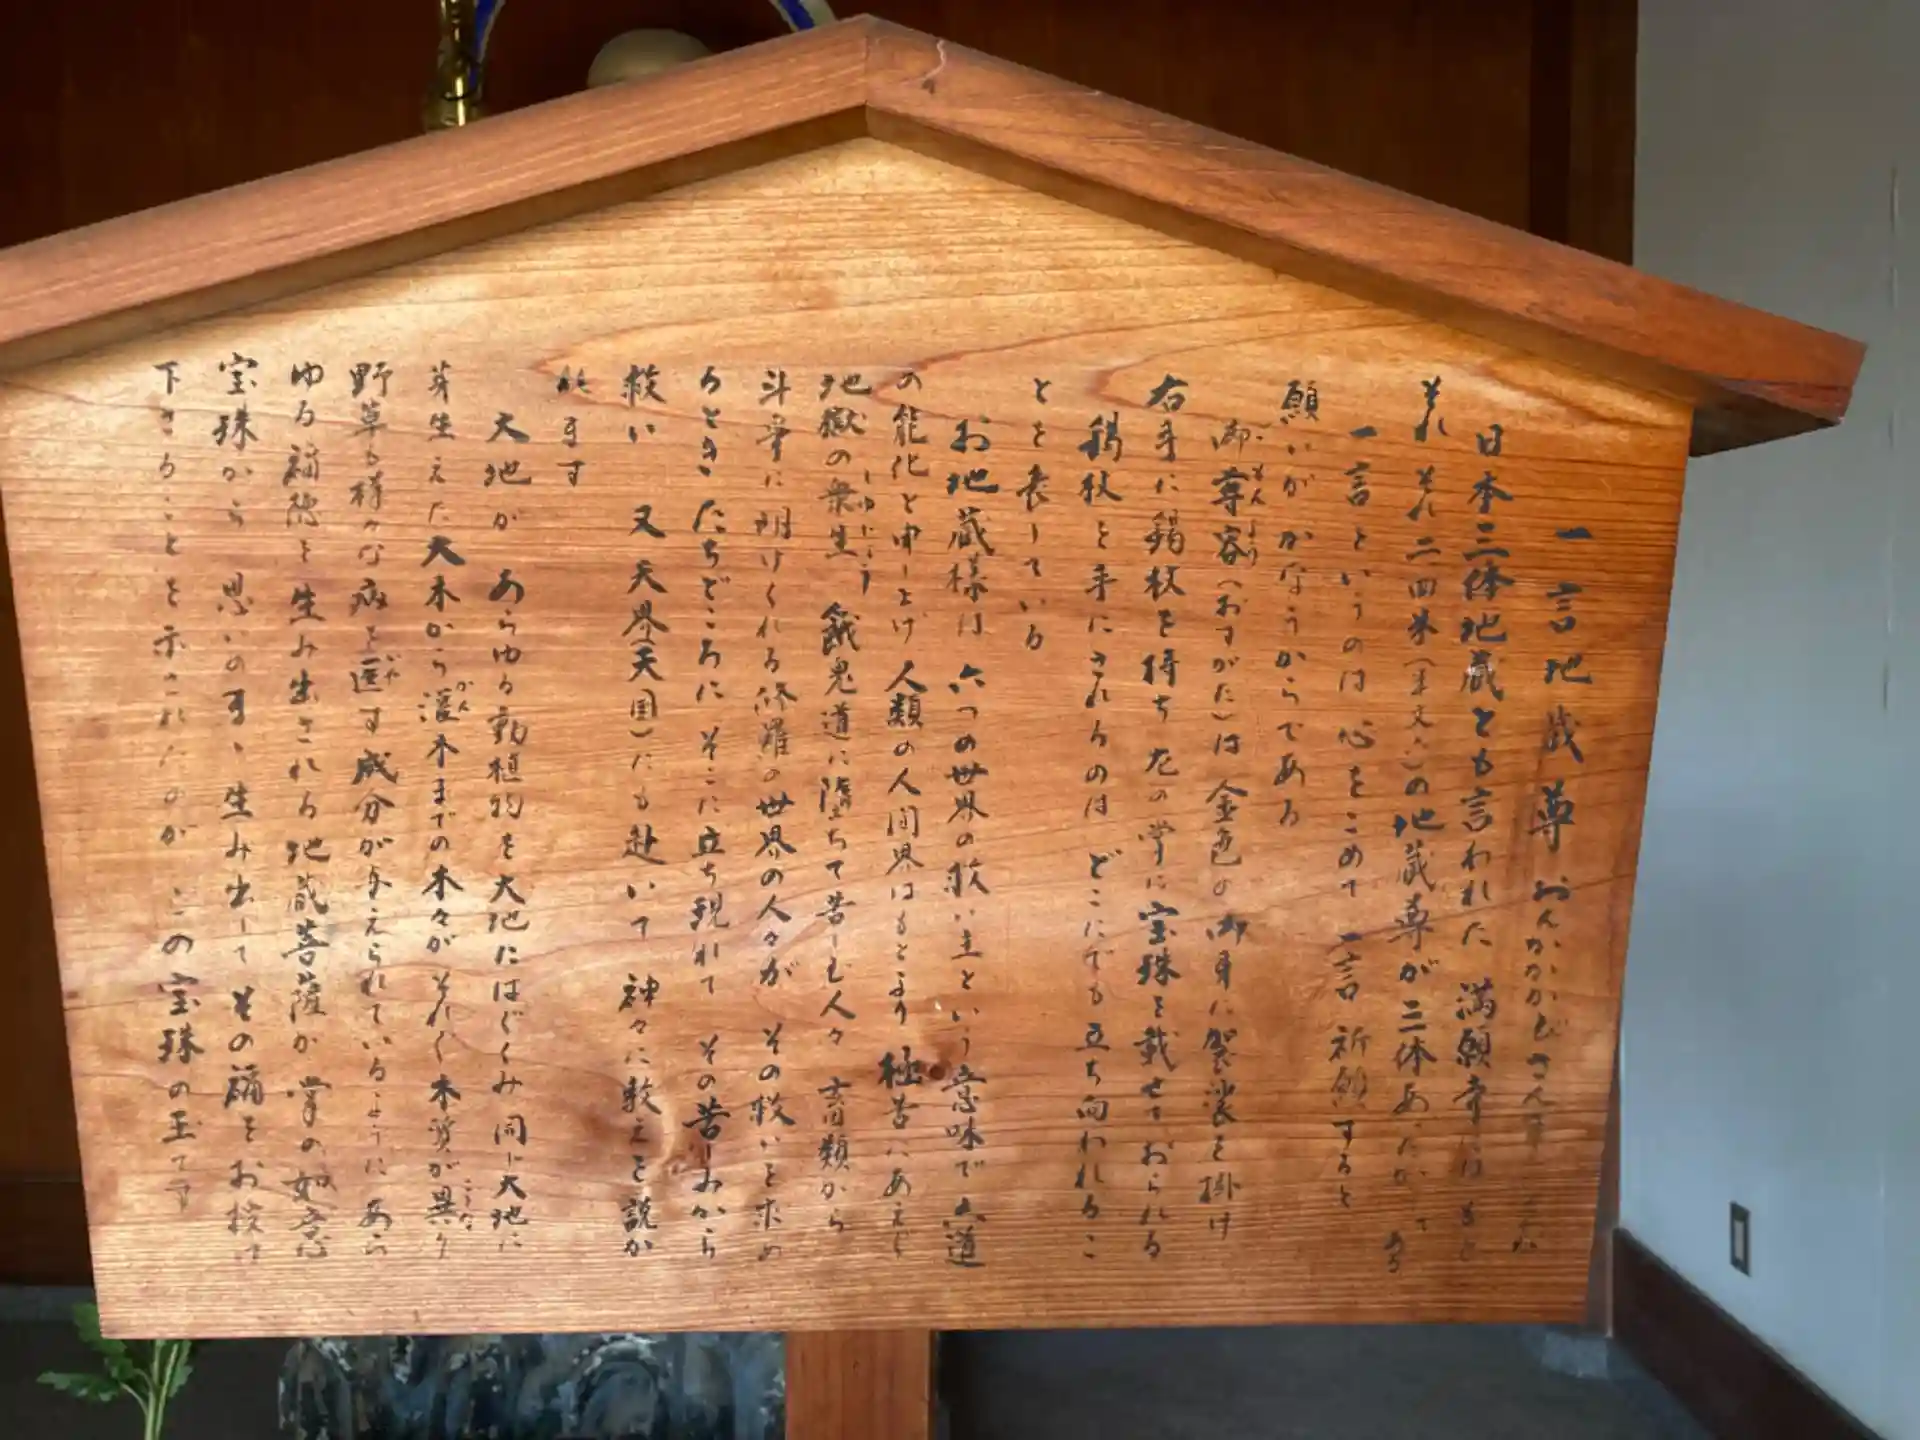 一言地蔵尊 おんかかかびさんま
日本三体地蔵とも言われた 満願寺には もと
それぞれ二四米(丈六)の地蔵尊が三体あった
ある
一言というのは 心をこめて 一言 祈願すると
願いが かなうからである
御尊容(おすがた)は 金色の 御身に袈裟を掛け
右手に錫杖を持ち 左の掌に宝珠を載せておられる
錫杖を手にされるのは どこにでも立ち向われるこ
とを表している
お地蔵様は 六つの世界の救い主という意味で 六道
の能化と申し上げ 人類の人間界はもとより 極苦にあえぐ
地獄の衆生 餓鬼道に墮ちて苦しむ人々 畜類から
しゅじょう
斗争に明けくれる修羅の世界の人々が その救いを求め
るとき たちどころに そこに立ち現れて その苦しみから
救い 又 天界(天国)にも赴いて 神々に教えを説か
れます
大地が あらゆる動植物を大地にはぐくみ 同じ大地に
芽生えた大木から灌木までの木々が それぞれ木質が異り
かん
野草も様々な病を医す成分が与えられているように あら
ゆる福徳を生み出される地蔵菩薩が 掌の如意
宝珠から 思いのまゝ生み出して その福をお授け
下さることを示されたのが この宝珠の玉です